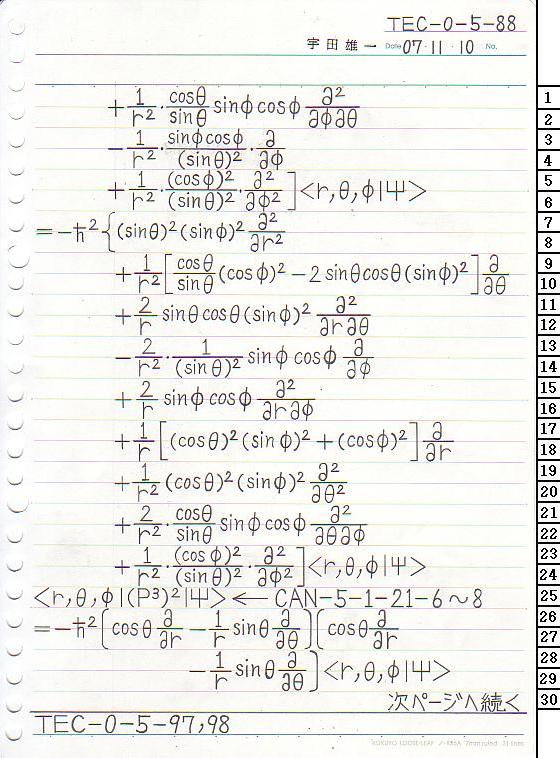 TEC-0-5-88
宇田雄一 Date 07・11・10 No.
+ 1/r² · cosθ/sinθ sinφ cosφ ∂²/∂φ∂θ
− 1/r² · sinφcosφ/(sinθ)² · ∂/∂φ
+ 1/r² · (cosφ)²/(sinθ)² · ∂²/∂φ² ]<r,θ,φ|Ψ>
= −ℏ²{(sinθ)²(sinφ)² ∂²/∂r²
+ 1/r² [cosθ/sinθ (cosφ)² − 2 sinθcosθ(sinφ)²] ∂/∂θ
+ 2/r sinθ cosθ(sinφ)² ∂²/∂r∂θ
− 2/r² · 1/(sinθ)² sinφ cosφ ∂/∂φ
+ 2/r sinφ cosφ ∂²/∂r∂φ
+ 1/r [(cosθ)²(sinφ)² + (cosφ)²] ∂/∂r
+ 1/r² (cosθ)²(sinφ)² ∂²/∂θ²
+ 2/r² · cosθ/sinθ sinφ cosφ ∂²/∂θ∂φ
+ 1/r² · (cosφ)²/(sinθ)² · ∂²/∂φ² ]<r,θ,φ|Ψ>
<r,θ,φ|(P³)²|Ψ> ← CAN-5-1-21-6～8
= −ℏ² [cosθ ∂/∂r − 1/r sinθ ∂/∂θ] [cosθ ∂/∂r
− 1/r sinθ ∂/∂θ] <r,θ,φ|Ψ>
次ページへ続く
TEC-0-5-97,98
KOKUYO LOOSE-LEAF ノ-836A 7mm ruled 31 lines
1
2
3
4
5
6
7
8
9
10
11
12
13
14
15
16
17
18
19
20
21
22
23
24
25
26
27
28
29
30